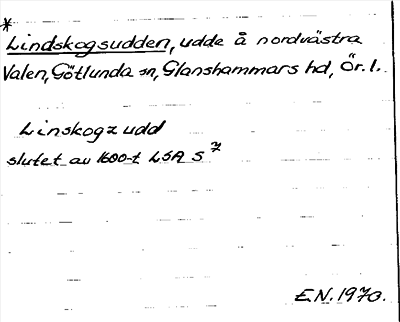 *
Lindskogsudden, udde å nordvästra
Valen, Götlunda sn, Glanshammars hd, Ör. l.
Linskogz udd
slutet av 1600-t LSA S 7
E.N. 1970.